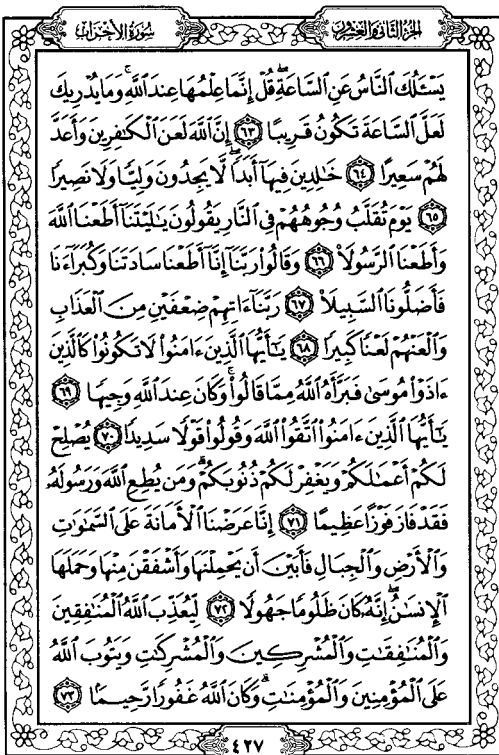 الجزء الثاني والعشرون
سورة الأحزاب
يَسْـَٔلُكَ ٱلنَّاسُ عَنِ ٱلسَّاعَةِۖ قُلْ إِنَّمَا عِلْمُهَا عِندَ ٱللَّهِۚ وَمَا يُدْرِيكَ
لَعَلَّ ٱلسَّاعَةَ تَكُونُ قَرِيبًا ٦٣ إِنَّ ٱللَّهَ لَعَنَ ٱلْكَٰفِرِينَ وَأَعَدَّ
لَهُمْ سَعِيرًا ٦٤ خَٰلِدِينَ فِيهَآ أَبَدًاۖ لَّا يَجِدُونَ وَلِيًّا وَلَا نَصِيرًا
٦٥ يَوْمَ تُقَلَّبُ وُجُوهُهُمْ فِى ٱلنَّارِ يَقُولُونَ يَٰلَيْتَنَآ أَطَعْنَا ٱللَّهَ
وَأَطَعْنَا ٱلرَّسُولَا۠ ٦٦ وَقَالُوا۟ رَبَّنَآ إِنَّآ أَطَعْنَا سَادَتَنَا وَكُبَرَآءَنَا
فَأَضَلُّونَا ٱلسَّبِيلَا۠ ٦٧ رَبَّنَآ ءَاتِهِمْ ضِعْفَيْنِ مِنَ ٱلْعَذَابِ
وَٱلْعَنْهُمْ لَعْنًا كَبِيرًا ٦٨ يَٰٓأَيُّهَا ٱلَّذِينَ ءَامَنُوا۟ لَا تَكُونُوا۟ كَٱلَّذِينَ
ءَاذَوْا۟ مُوسَىٰ فَبَرَّأَهُ ٱللَّهُ مِمَّا قَالُوا۟ۚ وَكَانَ عِندَ ٱللَّهِ وَجِيهًا ٦٩
يَٰٓأَيُّهَا ٱلَّذِينَ ءَامَنُوا۟ ٱتَّقُوا۟ ٱللَّهَ وَقُولُوا۟ قَوْلًا سَدِيدًا ٧٠ يُصْلِحْ
لَكُمْ أَعْمَٰلَكُمْ وَيَغْفِرْ لَكُمْ ذُنُوبَكُمْۗ وَمَن يُطِعِ ٱللَّهَ وَرَسُولَهُۥ
فَقَدْ فَازَ فَوْزًا عَظِيمًا ٧١ إِنَّا عَرَضْنَا ٱلْأَمَانَةَ عَلَى ٱلسَّمَٰوَٰتِ
وَٱلْأَرْضِ وَٱلْجِبَالِ فَأَبَيْنَ أَن يَحْمِلْنَهَا وَأَشْفَقْنَ مِنْهَا وَحَمَلَهَا
ٱلْإِنسَٰنُۖ إِنَّهُۥ كَانَ ظَلُومًا جَهُولًا ٧٢ لِّيُعَذِّبَ ٱللَّهُ ٱلْمُنَٰفِقِينَ
وَٱلْمُنَٰفِقَٰتِ وَٱلْمُشْرِكِينَ وَٱلْمُشْرِكَٰتِ وَيَتُوبَ ٱللَّهُ
عَلَى ٱلْمُؤْمِنِينَ وَٱلْمُؤْمِنَٰتِۗ وَكَانَ ٱللَّهُ غَفُورًا رَّحِيمًا ٧٣
٤٢٧